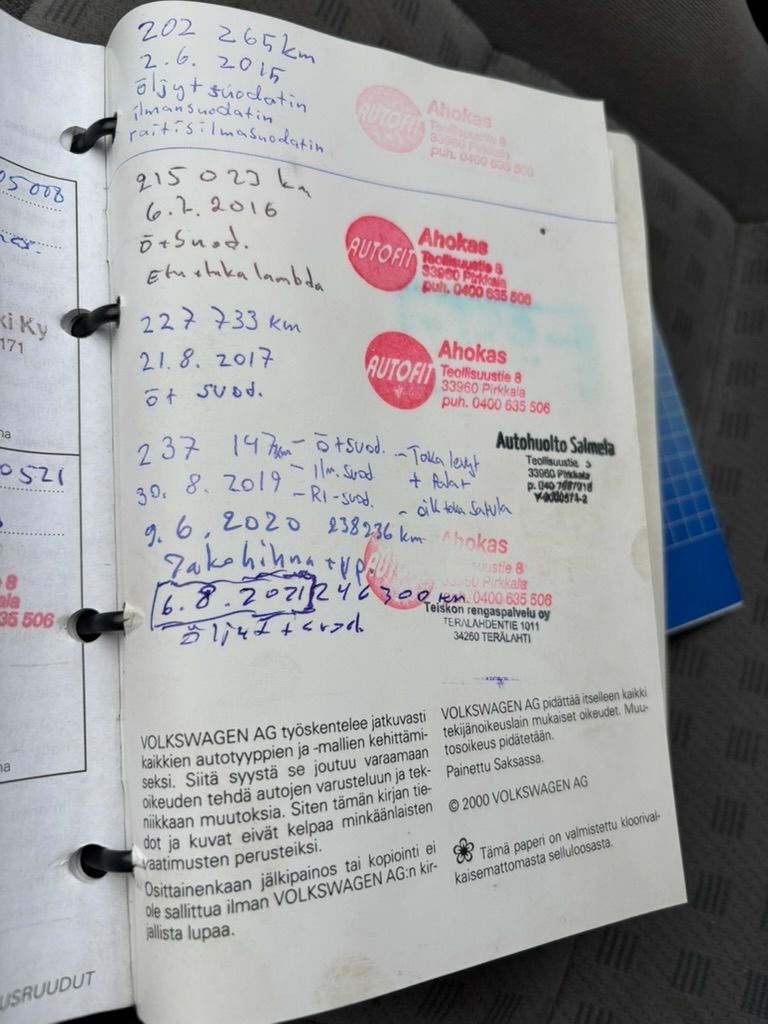 202 265km
2.6. 2015
öljyt suodatin
ilmansuodatin
raitisilmasuodatin
AUTOFIT
Ahokas
Teollisuustie 8
33960 Pirkkala
puh. 0400 635 506
215 023 km
6.7. 2016
ö+suod.
Etu+taka lambda
AUTOFIT
Ahokas
Teollisuustie 8
33960 Pirkkala
puh. 0400 635 506
227 733 km
21.8. 2017
ö+ suod.
AUTOFIT
Ahokas
Teollisuustie 8
33960 Pirkkala
puh. 0400 635 506
237 147km – ö+suod. – Toka levyt
30. 8. 2019 – Ilm.suod + Palat
– RI-suod. – oik toka satula
Autohuolto Salmela
Teollisuustie
33960 Pirkkala
9.6.2020 238236 km
Jakohihna + vp.
Ahokas
Teollisuustie 8
33960 Pirkkala
puh. 0400 635 506
6.8.2021 246300 km
Öljyt + suod.
Teiskon rengaspalvelu oy
TERÄLAHDENTIE 1011
34260 TERÄLAHTI
VOLKSWAGEN AG työskentelee jatkuvasti
kaikkien autotyyppien ja -mallien kehittämi-
seksi. Siitä syystä se joutuu varaamaan
oikeuden tehdä autojen varusteluun ja tek-
niikkaan muutoksia. Siten tämän kirjan tie-
dot ja kuvat eivät kelpaa minkäänlaisten
vaatimusten perusteiksi.
Osittainenkaan jälkipainos tai kopiointi ei
ole sallittua ilman VOLKSWAGEN AG:n kir-
jallista lupaa.
VOLKSWAGEN AG pidättää itselleen kaikki
tekijänoikeuslain mukaiset oikeudet. Muu-
tosoikeus pidätetään.
Painettu Saksassa.
© 2000 VOLKSWAGEN AG
Tämä paperi on valmistettu kloorival-
kaisemattomasta selluloosasta.
05008
ki Ky
171
0521
8
ala
35 506
USRUUDUT